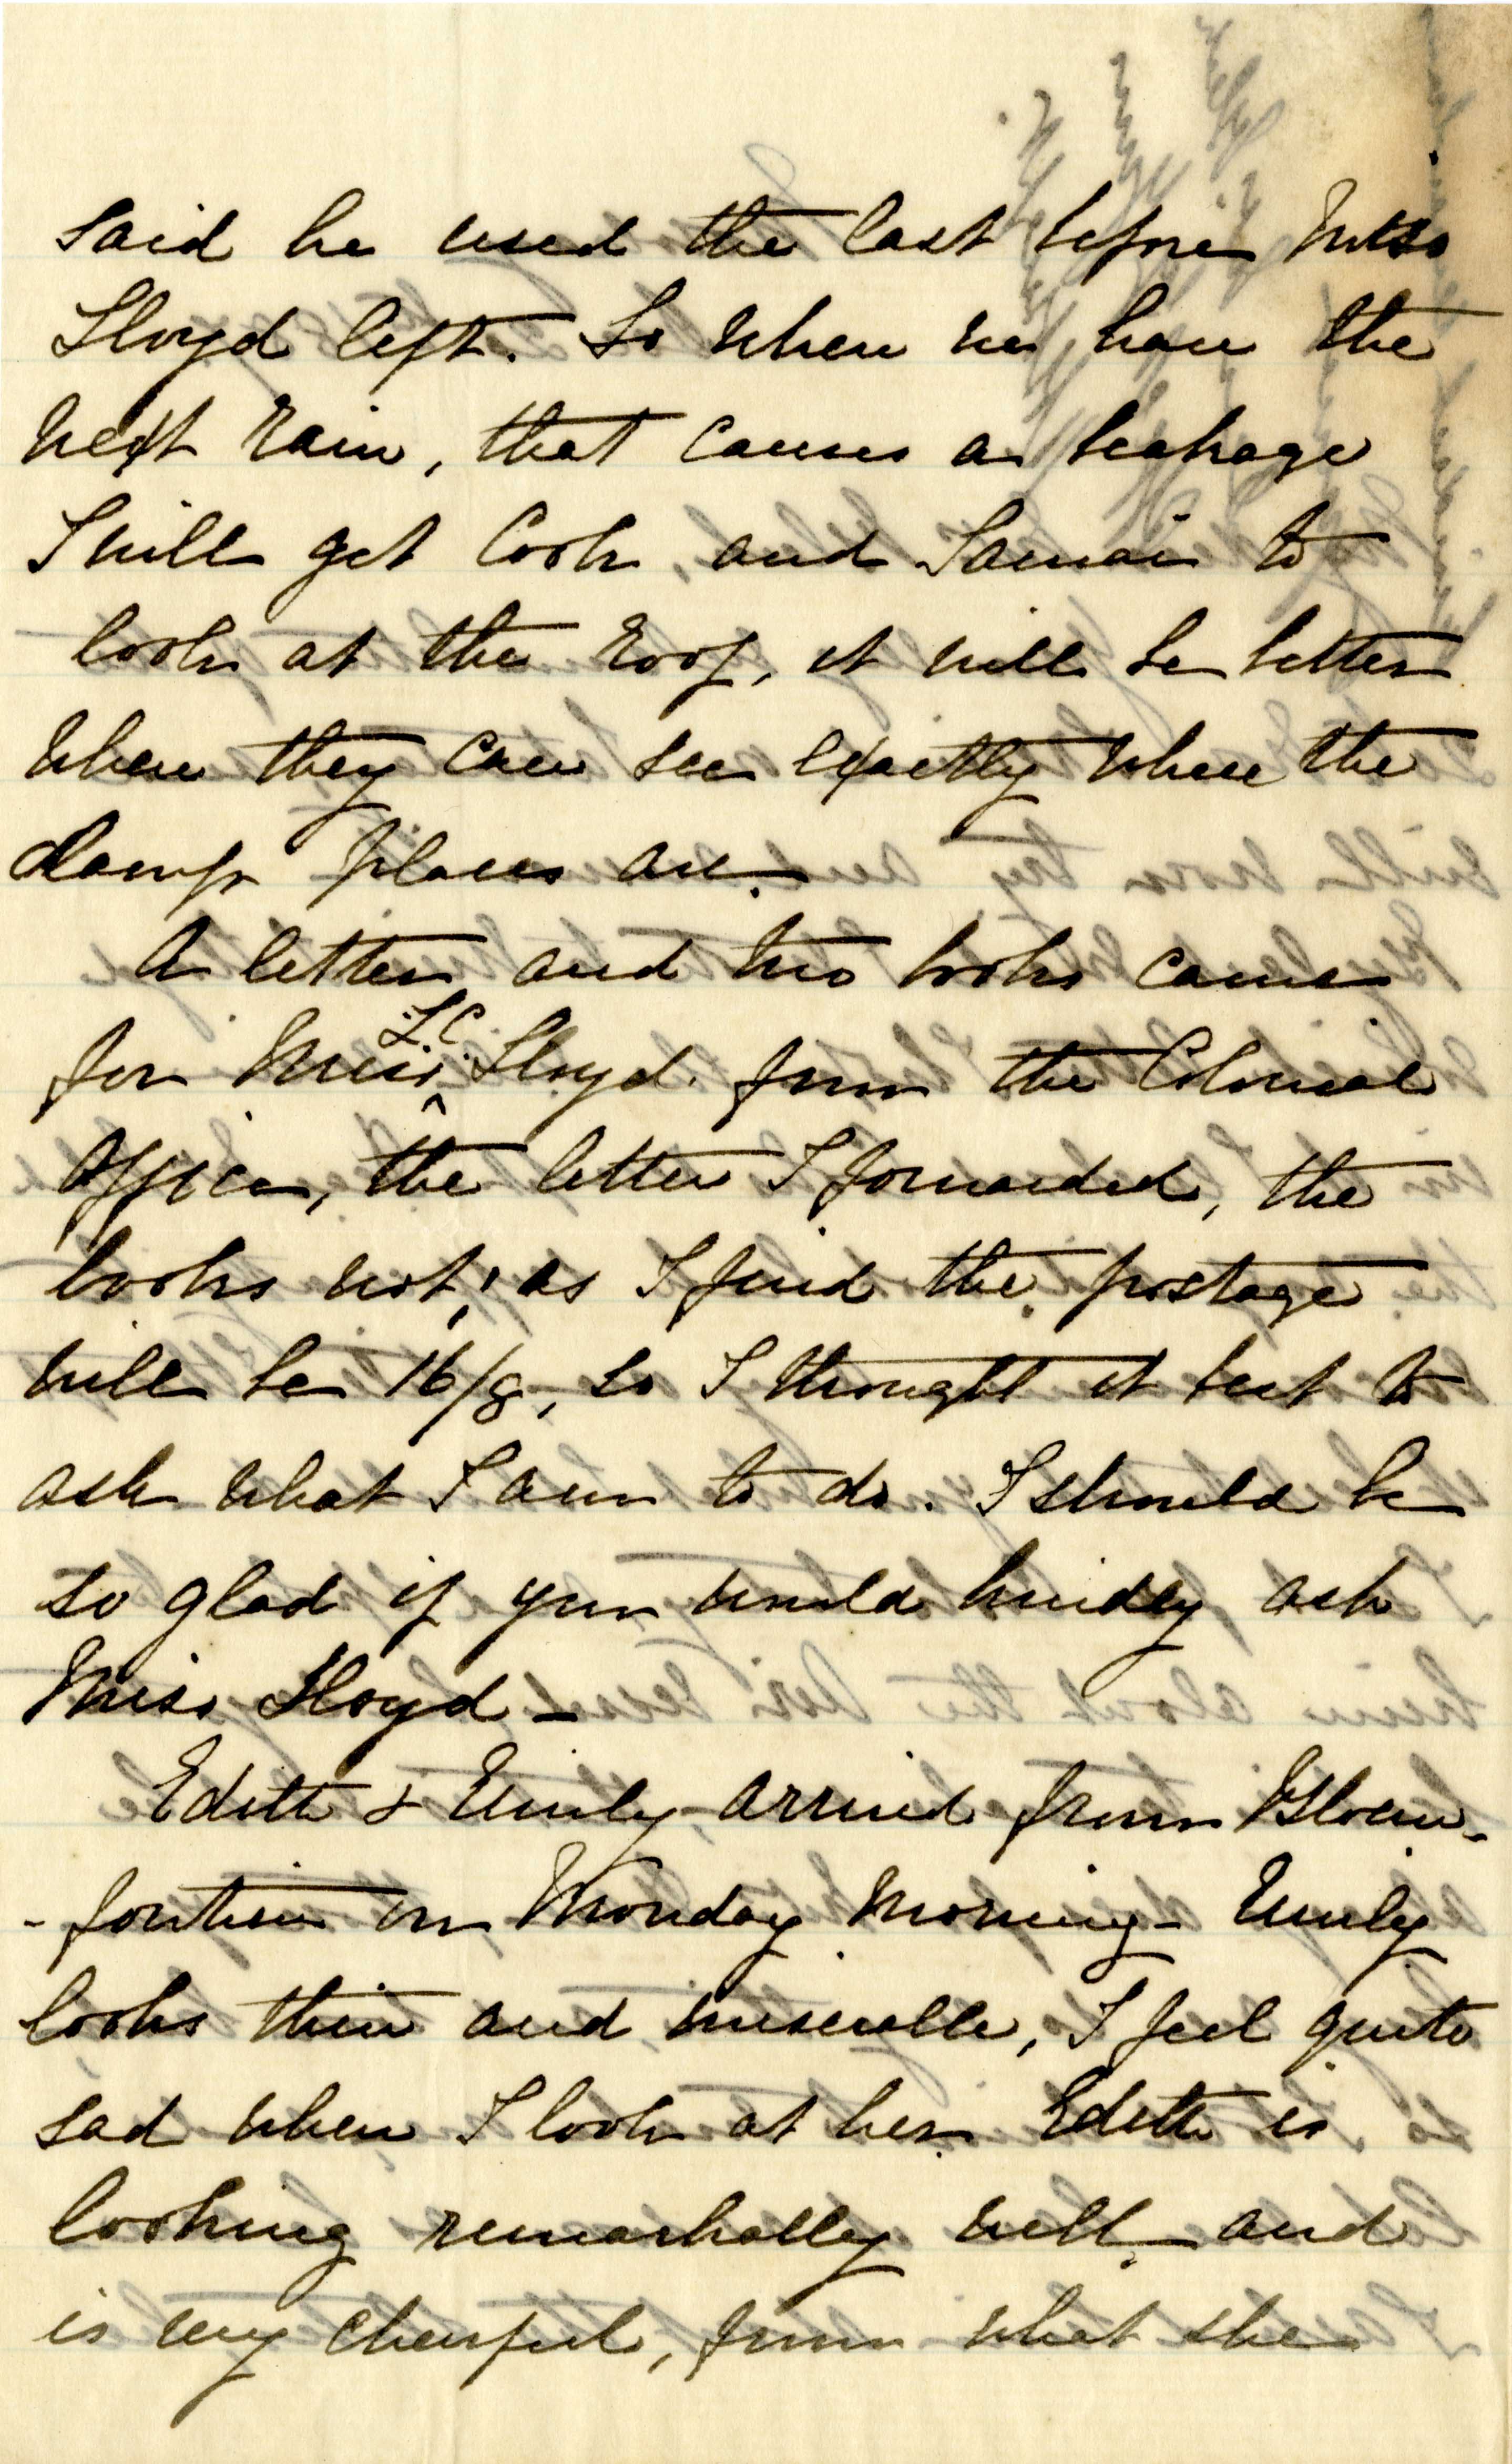 said he used the last before Miss
Lloyd left. So when we have the
next rain, that causes a leakage
I will get Cook and to
look at the roof, it will be better
when they can see exactly where the
damp places are.
A letter and two books came
for Miss L.C. Lloyd from the Colonial
Office, the letter I forwarded, the
books not, as I find the postage
will be 16/8, so I thought it best to
ask what I am to do. I should be
so glad if you would kindly ask
Miss Lloyd –
Edith & Emily arrived from Bloem-
-fontein on Monday morning – Emily
looks thin and miserable, I feel quite
sad when I look at her. Edith is
looking remarkably well, and
is very cheerful, from what she